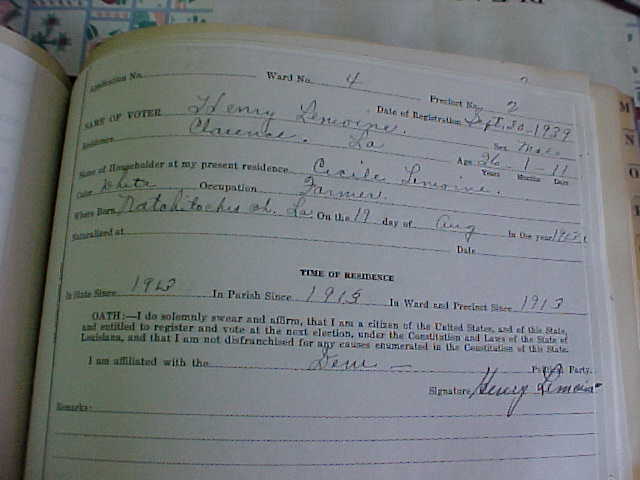 Application No. Ward No. 4 Precinct No. 2
NAME OF VOTER Henry Lemoine. Date of Registration Sept. 30 - 1939
Residence Clarence. La Sex Male
Name of Householder at my present residence Cecile Lemoine. Age 26 - 1 - 11
Years Months Days
Color White Occupation Farmer.
Where Born Natchitoches La On the 19 day of Aug In the year 1913
Naturalized at Date
TIME OF RESIDENCE
In State Since 1913 In Parish Since 1913 In Ward and Precinct Since 1913
OATH:—I do solemnly swear and affirm, that I am a citizen of the United States, and of this State,
and entitled to register and vote at the next election, under the Constitution and Laws of the State of
Louisiana, and that I am not disfranchised for any causes enumerated in the Constitution of this State.
I am affiliated with the Dem — Political Party.
Signature Henry Lemoine
Remarks:
M
N
O